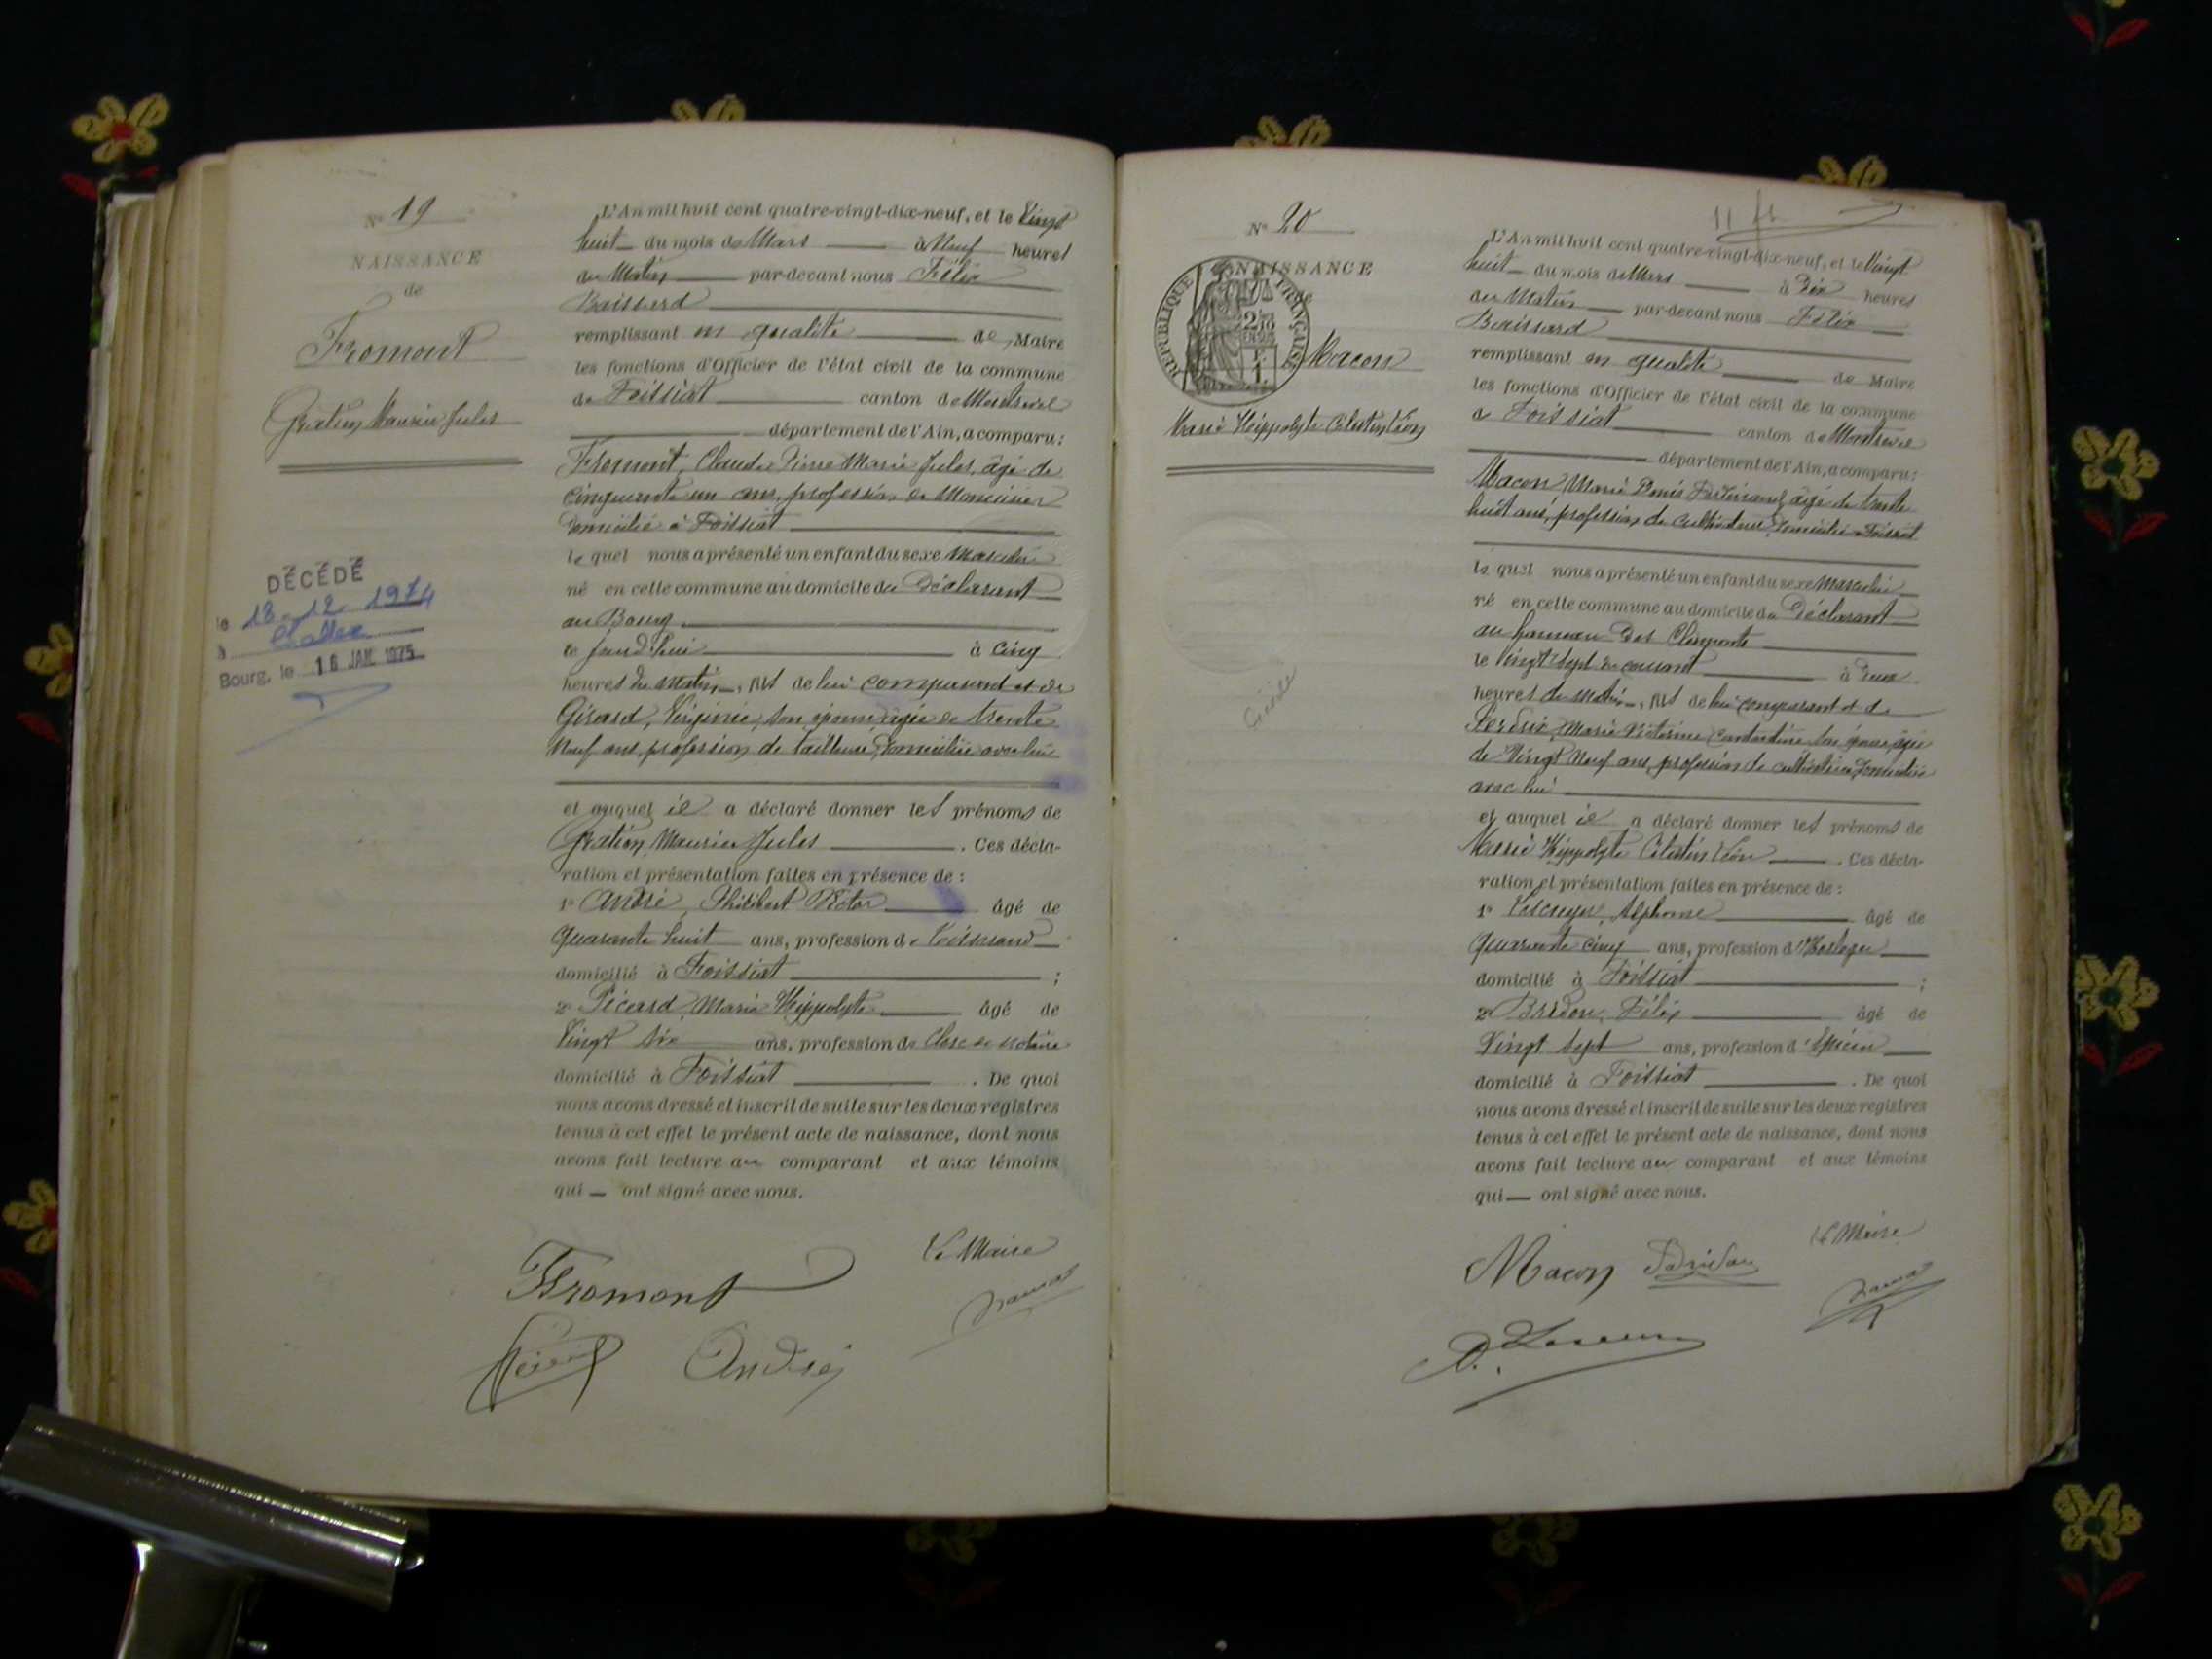 N° 19
NAISSANCE
de
Fromont
Gratien Maurice Jules
DÉCÉDÉ
le 18-12-1974
à
Bourg, le 16 JAN 1975
L'An mil huit cent quatre-vingt-dix-neuf, et le Vingt
huit du mois de Mars à Neuf heures
du Matin par-devant nous Félix
Boissard
remplissant en qualité de Maire
les fonctions d'Officier de l'état civil de la commune
de Foissiat canton de Montrevel
département de l'Ain, a comparu:
Fromont, Claude Pierre Marie Jules, âgé de
cinquante un ans, profession de Menuisier
domicilié à Foissiat
le quel nous a présenté un enfant du sexe Masculin
né en cette commune au domicile du Déclarant
au Bourg
ce jourd'hui à cinq
heures du matin, né de lui comparant et de
Girard, Virginie, son épouse âgée de trente
neuf ans, profession de tailleuse, domiciliée avec lui
et auquel il a déclaré donner les prénoms de
Gratien Maurice Jules. Ces décla-
ration et présentation faites en présence de :
1° André, Philibert Victor âgé de
Quarante huit ans, profession de Tisserand
domicilié à Foissiat ;
2° Picard, Marie Hippolyte âgé de
Vingt six ans, profession de Clerc de notaire
domicilié à Foissiat. De quoi
nous avons dressé et inscrit de suite sur les deux registres
tenus à cet effet le présent acte de naissance, dont nous
avons fait lecture au comparant et aux témoins
qui — ont signé avec nous.
Le Maire
Fromont
André
N° 20
NAISSANCE
de
RÉPUBLIQUE FRANÇAISE
Macon
Marie Hippolyte Célestin Léon
L'An mil huit cent quatre-vingt-dix-neuf, et le Vingt
huit du mois de Mars à Dix heures
du Matin par-devant nous Félix
Boissard
remplissant en qualité de Maire
les fonctions d'Officier de l'état civil de la commune
de Foissiat canton de Montrevel
département de l'Ain, a comparu:
Macon, Marie Denis Ferdinand, âgé de trente
huit ans, profession de cultivateur, domicilié à Foissiat
le quel nous a présenté un enfant du sexe Masculin
né en cette commune au domicile du Déclarant
au hameau des
le Vingt sept du courant à Deux
heures du matin, né de lui comparant et de
Marie Victorine son épouse, âgée
de Vingt neuf ans, profession de cultivatrice, domiciliée
avec lui
et auquel il a déclaré donner les prénoms de
Marie Hippolyte Célestin Léon. Ces décla-
ration et présentation faites en présence de :
1° Alphonse âgé de
Quarante cinq ans, profession d'Horloger
domicilié à Foissiat ;
2° Bridon, Félix âgé de
Vingt sept ans, profession d'Epicier
domicilié à Foissiat. De quoi
nous avons dressé et inscrit de suite sur les deux registres
tenus à cet effet le présent acte de naissance, dont nous
avons fait lecture au comparant et aux témoins
qui — ont signé avec nous.
Le Maire
Macon Bridon